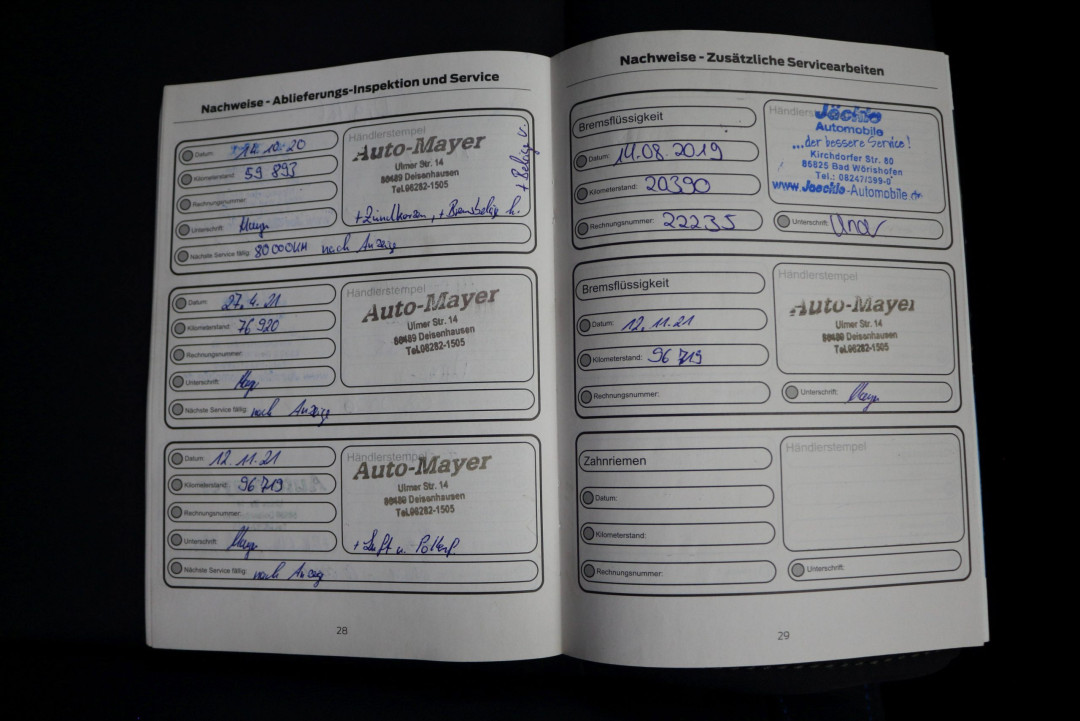 Nachweise - Ablieferungs-Inspektion und Service
Datum: 14.10.20
Kilometerstand: 59 893
Rechnungsnummer:
Unterschrift: Mayr
Nächste Service fällig: 80 000KM nach Anzeige
Händlerstempel
Auto-Mayer
Ulmer Str. 14
86489 Deisenhausen
Tel.08282-1505
+ Zündkerzen, + Bremsbeläge h.
+ Beläge v.
Datum: 27.4.21
Kilometerstand: 76 920
Rechnungsnummer:
Unterschrift:
Nächste Service fällig: nach Anzeige
Händlerstempel
Auto-Mayer
Ulmer Str. 14
86489 Deisenhausen
Tel.08282-1505
Datum: 12.11.21
Kilometerstand: 96 719
Rechnungsnummer:
Unterschrift:
Nächste Service fällig: nach Anzeig
Händlerstempel
Auto-Mayer
Ulmer Str. 14
86489 Deisenhausen
Tel.08282-1505
+ Luft u. Pollenf
28
Nachweise - Zusätzliche Servicearbeiten
Bremsflüssigkeit
Datum: 14.08.2019
Kilometerstand: 20390
Rechnungsnummer: 22235
Händlers
Jächle
Automobile
...der bessere Service!
Kirchdorfer Str. 80
86825 Bad Wörishofen
Tel.: 08247/399-0
www.Jaechle-Automobile.de
Unterschrift:
Bremsflüssigkeit
Datum: 12.11.21
Kilometerstand: 96 719
Rechnungsnummer:
Händlerstempel
Auto-Mayer
Ulmer Str. 14
86489 Deisenhausen
Tel.08282-1505
Unterschrift:
Zahnriemen
Datum:
Kilometerstand:
Rechnungsnummer:
Händlerstempel
Unterschrift:
29